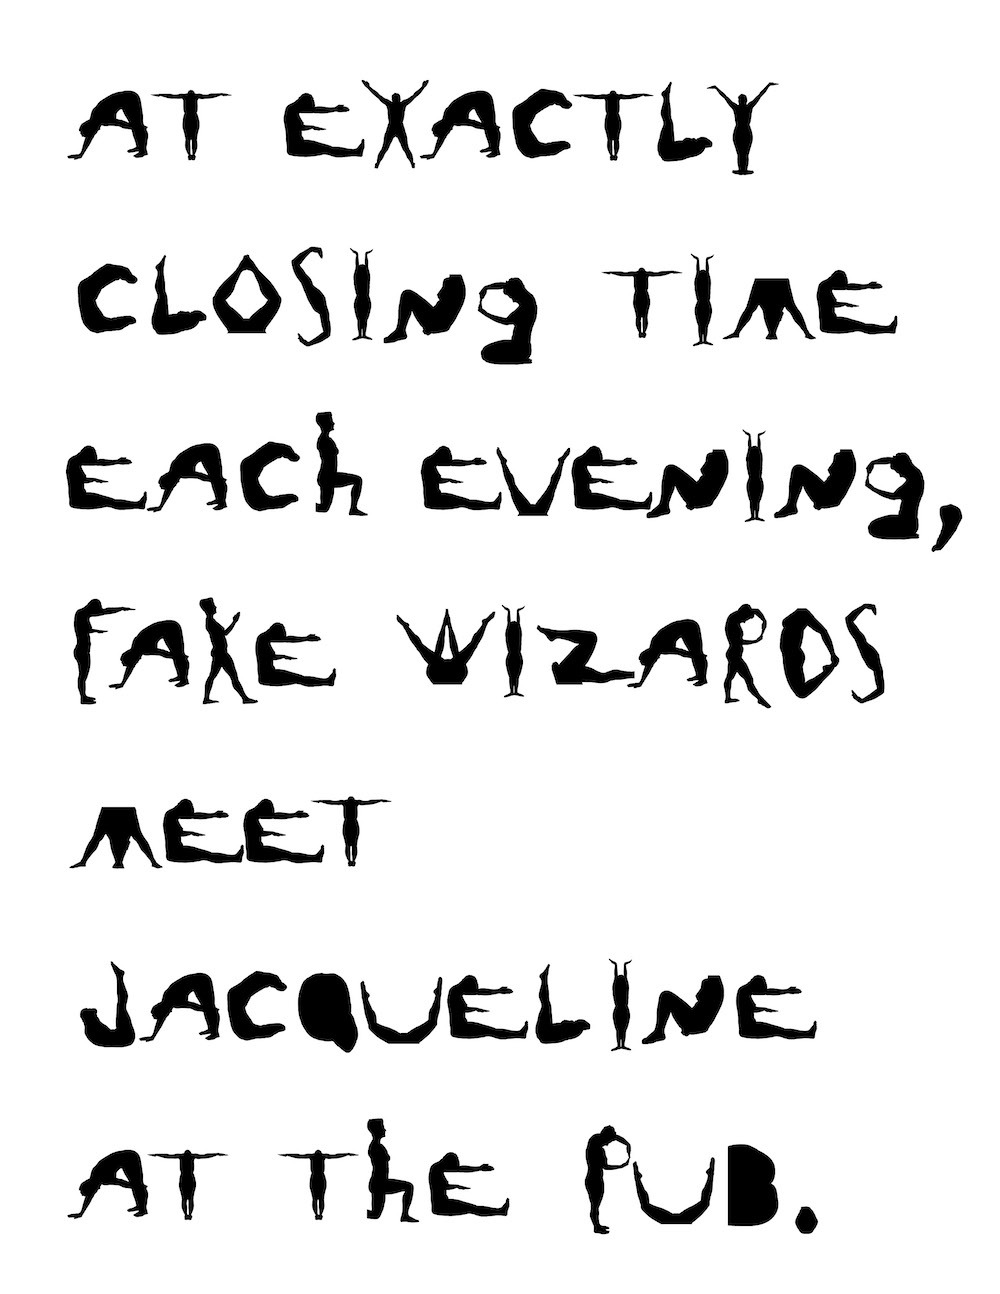 AT EXACTLY
CLOSINg TIME
EACh EVENINg,
FAKE WIZARDS
MEET
JACQUELINE
AT ThE PUB.